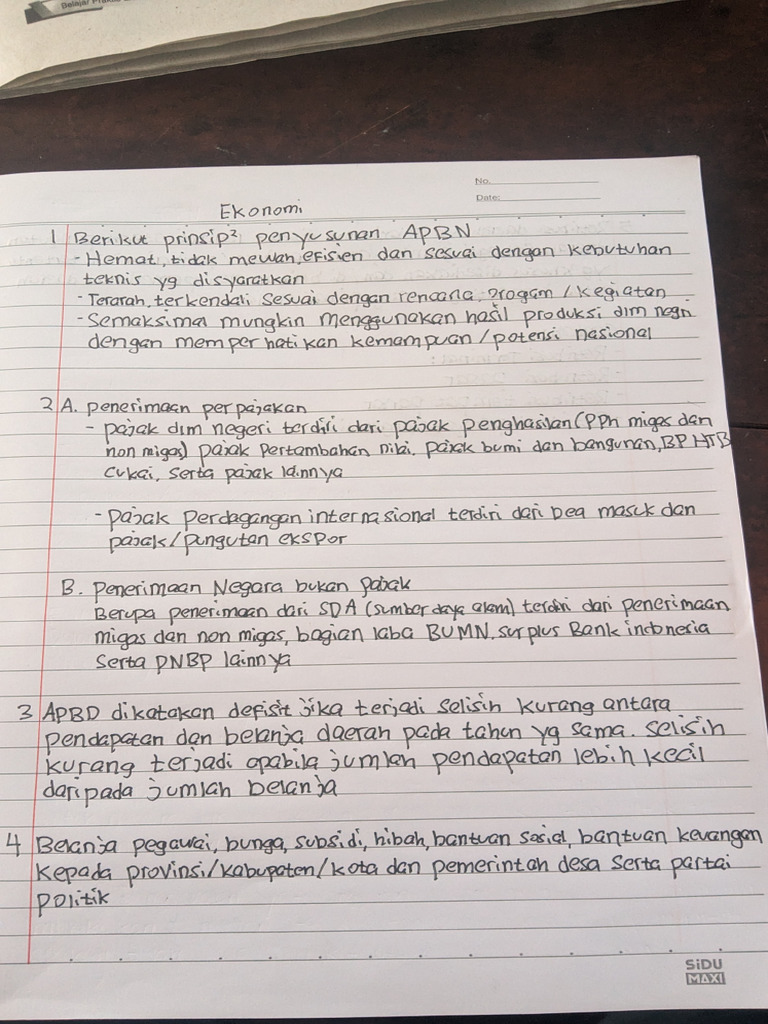 Belajar
No.
Date:
Ekonomi
1 Berikut prinsip² penyusunan APBN
- Hemat, tidak mewah, efisien dan sesuai dengan kebutuhan
teknis yg disyaratkan
- Terarah, terkendali sesuai dengan rencana, program / kegiatan
- Semaksimal mungkin menggunakan hasil produksi dlm negri
dengan memperhatikan kemampuan / potensi nasional
2 A. penerimaan perpajakan
- pajak dlm negeri terdiri dari pajak penghasilan (PPh migas dan
non migas) pajak pertambahan nilai, pajak bumi dan bangunan, BPHTB
cukai, serta pajak lainnya
- pajak perdagangan internasional terdiri dari bea masuk dan
pajak / pungutan ekspor
B. Penerimaan Negara bukan pajak
Berupa penerimaan dari SDA (sumber daya alam) terdiri dari penerimaan
migas dan non migas, bagian laba BUMN, surplus Bank indonesia
serta PNBP lainnya
3 APBD dikatakan defisit jika terjadi selisih kurang antara
pendapatan dan belanja daerah pada tahun yg sama. selisih
kurang terjadi apabila jumlah pendapatan lebih kecil
daripada jumlah belanja
4 Belanja pegawai, bunga, subsidi, hibah, bantuan sosial, bantuan keuangan
kepada provinsi / kabupaten / kota dan pemerintah desa serta partai
politik
SiDU
MAXI